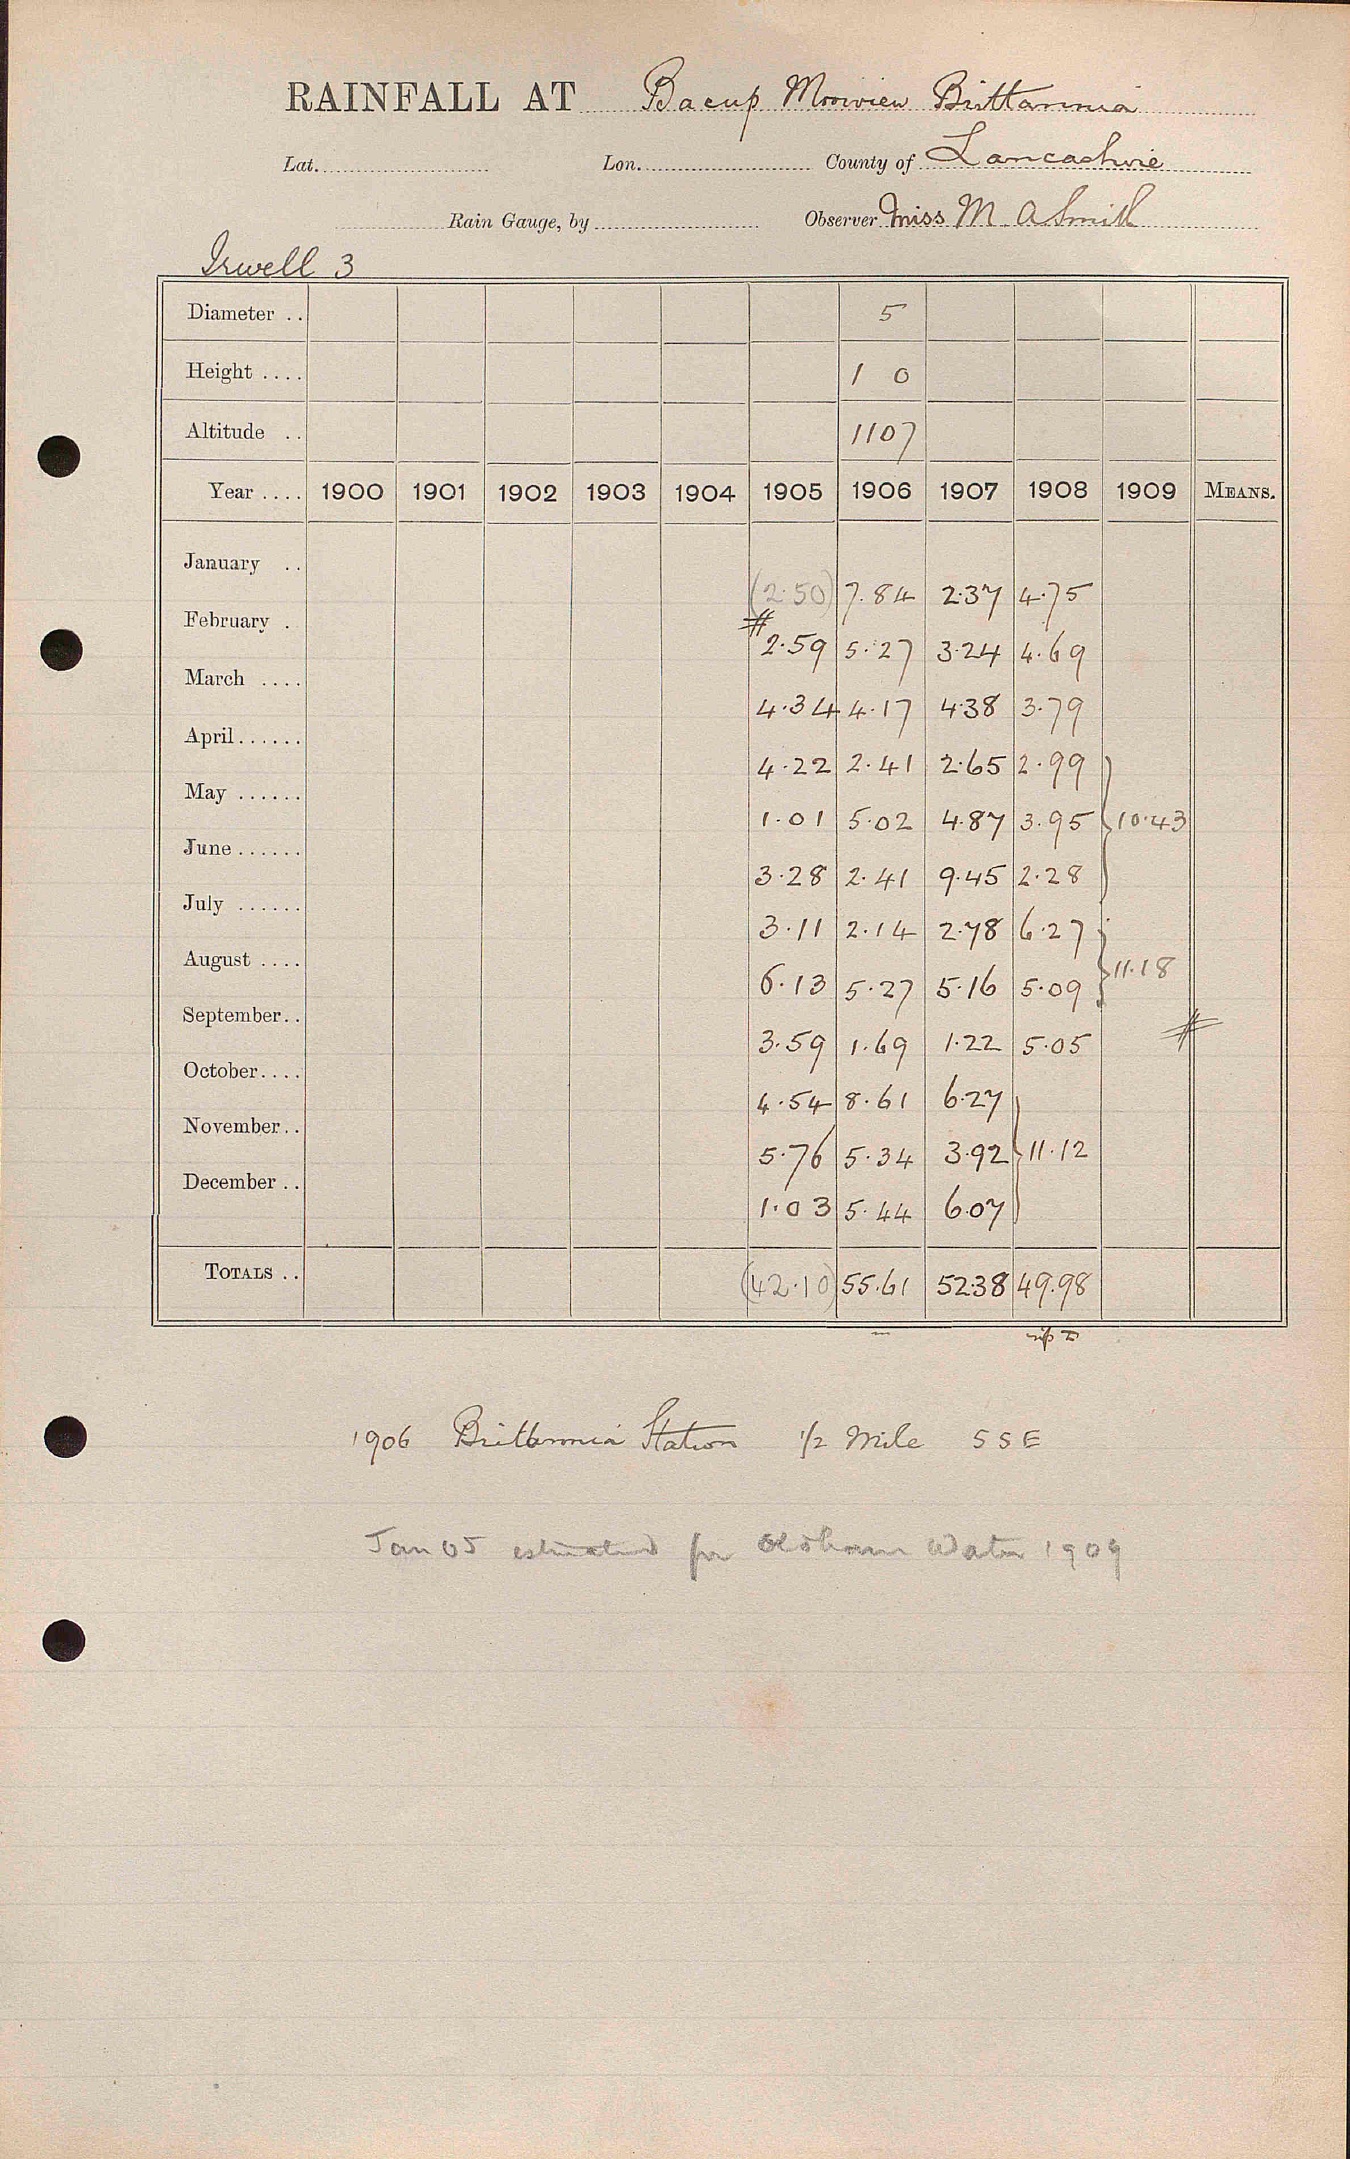 RAINFALL AT Bacup Moorview Brittannia
Lat. Lon. County of Lancashire
Rain Gauge, by Observer Miss M A Smith
Irwell 3
Diameter .. 5
Height .... 1 0
Altitude .. 1107
Year .... 1900 1901 1902 1903 1904 1905 1906 1907 1908 1909 MEANS.
January .. (2.50) 7.84 2.37 4.75
February . # 2.59 5.27 3.24 4.69
March .... 4.34 4.17 4.38 3.79
April...... 4.22 2.41 2.65 2.99
May ...... 1.01 5.02 4.87 3.95 } 10.43
June ...... 3.28 2.41 9.45 2.28
July ...... 3.11 2.14 2.78 6.27
August .... 6.13 5.27 5.16 5.09 } 11.18
September.. 3.59 1.69 1.22 5.05 #
October.... 4.54 8.61 6.27
November.. 5.76 5.34 3.92 } 11.12
December .. 1.03 5.44 6.07
TOTALS .. (42.10) 55.61 52.38 49.98
1906 Brittannia Station 1/2 Mile S S E
Jan 05 estimated for Oldham Water 1909